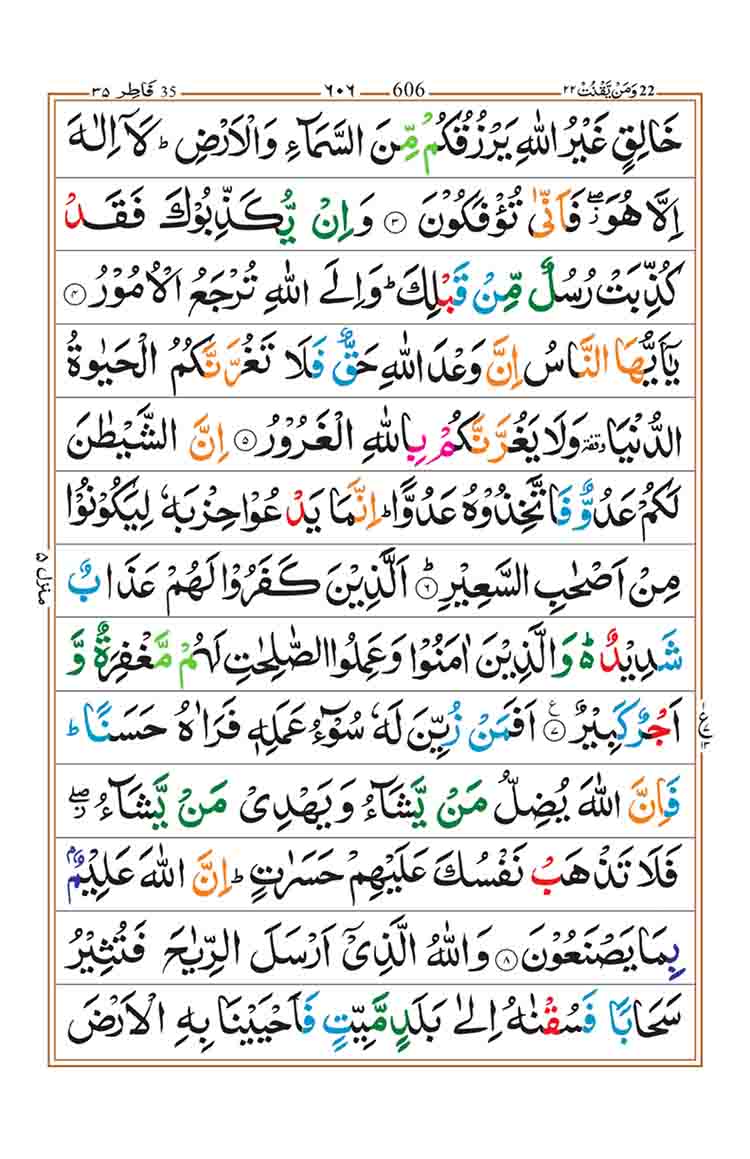 22 وَمَنْ يَّقْنُتْ ٢٢ 606 ٦٠٦ 35 فَاطِر ٣٥
خَالِقٍ غَيْرُ اللّٰهِ يَرْزُقُكُمْ مِّنَ السَّمَآءِ وَالْاَرْضِ ؕ لَاۤ اِلٰهَ
اِلَّا هُوَ ۖؗ فَاَنّٰى تُؤْفَكُوْنَ ۝٣ وَاِنْ يُّكَذِّبُوْكَ فَقَدْ
كُذِّبَتْ رُسُلٌ مِّنْ قَبْلِكَ ؕ وَاِلَى اللّٰهِ تُرْجَعُ الْاُمُوْرُ ۝٤
يٰۤاَيُّهَا النَّاسُ اِنَّ وَعْدَ اللّٰهِ حَقٌّ فَلَا تَغُرَّنَّكُمُ الْحَيٰوةُ
الدُّنْيَا وقفة وَلَا يَغُرَّنَّكُمْ بِاللّٰهِ الْغَرُوْرُ ۝٥ اِنَّ الشَّيْطٰنَ
لَكُمْ عَدُوٌّ فَاتَّخِذُوْهُ عَدُوًّا ؕ اِنَّمَا يَدْعُوْا حِزْبَهٗ لِيَكُوْنُوْا
مِنْ اَصْحٰبِ السَّعِيْرِ ؕ ۝٦ اَلَّذِيْنَ كَفَرُوْا لَهُمْ عَذَابٌ
شَدِيْدٌ ؕ۬ وَالَّذِيْنَ اٰمَنُوْا وَعَمِلُوا الصّٰلِحٰتِ لَهُمْ مَّغْفِرَةٌ وَّ
اَجْرٌ كَبِيْرٌ ۝٧ ع اَفَمَنْ زُيِّنَ لَهٗ سُوْٓءُ عَمَلِهٖ فَرَاٰهُ حَسَنًا ؕ
فَاِنَّ اللّٰهَ يُضِلُّ مَنْ يَّشَآءُ وَيَهْدِيْ مَنْ يَّشَآءُ ۖؗ
فَلَا تَذْهَبْ نَفْسُكَ عَلَيْهِمْ حَسَرٰتٍ ؕ اِنَّ اللّٰهَ عَلِيْمٌۢ
بِمَا يَصْنَعُوْنَ ۝٨ وَاللّٰهُ الَّذِيْۤ اَرْسَلَ الرِّيٰحَ فَتُثِيْرُ
سَحَابًا فَسُقْنٰهُ اِلٰى بَلَدٍ مَّيِّتٍ فَاَحْيَيْنَا بِهِ الْاَرْضَ
منزل ٥